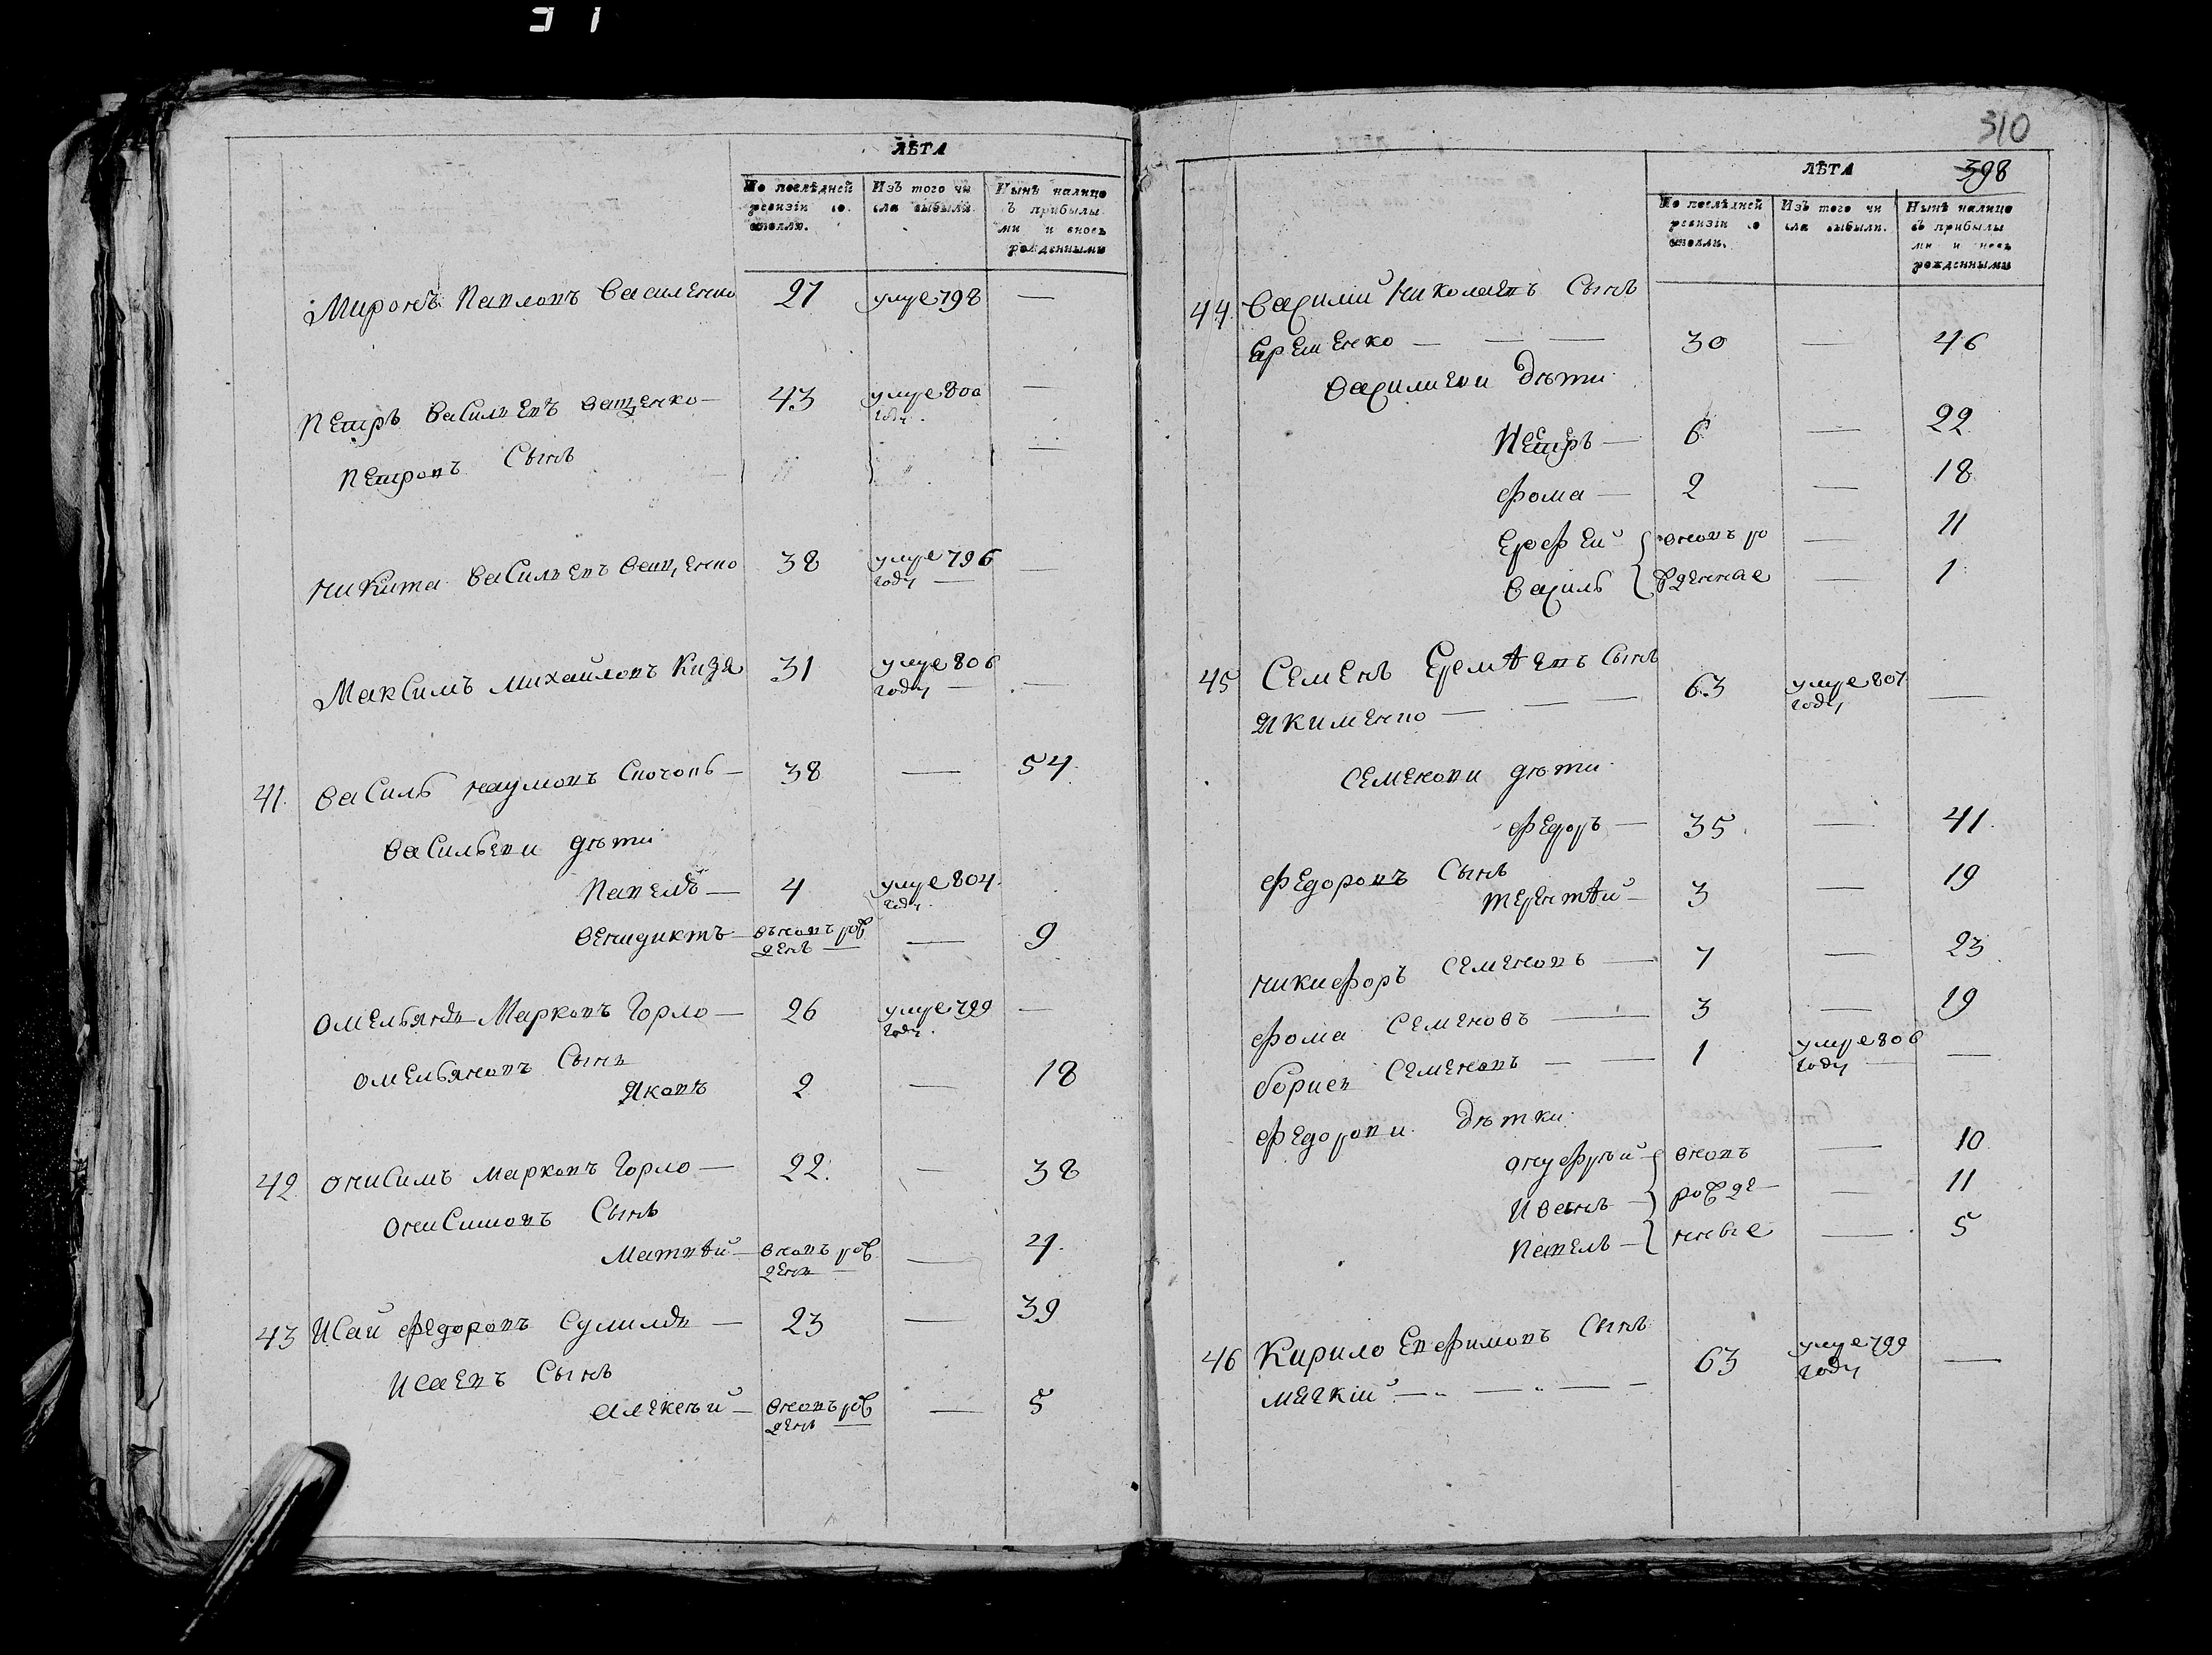 ЛѢТА
По послѣдней ревизіи со стояли.
Изъ того чи сла выбыли.
Нынѣ налицо съ прибылы ми и вновь рожденными
Миронъ Павловъ Василенко 27 умре 798 —
Петръ Васильевъ Ващенко — 43 умре 800 году. —
Петровъ Сынъ —
Никита Васильевъ Ващенко 38 умре 796 году — —
Максимъ Михайловъ Кизя 31 умре 806 году — —
41. Василь Наумовъ — 38 — 54.
Васильеви дѣти
Павелъ — 4 умре 804. году.
Венидиктъ — вновь рож денъ — — 9
Омельянъ Марковъ Горло — 26 умре 799 году. —
Омельяновъ Сынъ
Яковъ 2 — 18
42. Онисимъ Марковъ Горло — 22. — 38
Онисимовъ Сынъ
Матвѣй — вновь рож денъ — — 4.
43 Исай Федоровъ Сулима — 23 — 39
Исаевъ Сынъ
Алексѣй — вновь рож денъ — — 5
310
398
ЛѢТА
По послѣдней ревизіи со стояли.
Изъ того чи сла выбыли.
Нынѣ налицо съ прибылы ми и вновь рожденными
44. Василий Николаевъ Сынъ
Еременко — — — 30 — 46
Василиеви дѣти
Петръ — 6 — 22
Фома — 2 — 18
Ерофей вновь ро — 11
Василь жденные — 1
45 Семенъ Еремѣевъ Сынъ
Якименко — — — 63 умре 807 году —
Семенови дѣти
Федоръ — 35 — 41.
Федоровъ Сынъ
Терентѣй — 3 — 19
Никифоръ Семеновъ — 7 — 23
Фома Семеновъ — 3 — 19
Борисъ Семеновъ — — 1 умре 806 году — —
Федорови дѣтки
Онуфрѣй вновь — 10
Иванъ — рожде — 11
Павелъ — нные — 5
46 Кирило Евфимовъ Сынъ
Мягкій — — — 63 умре 799 году —